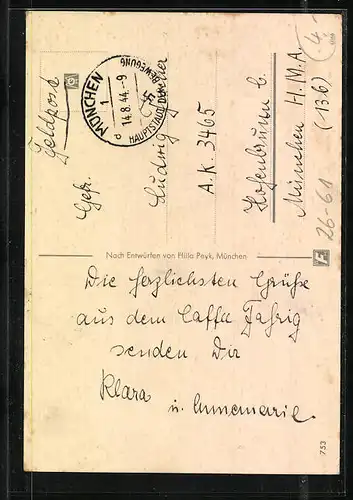 Feldpost
MÜNCHEN
1
d
14.8.44.-9
HAUPTSTADT DER BEWEGUNG
Gefr.
Ludwig
A.K. 3465
Hohenbrunn b.
München H.M.A.
(13b)
26-61
Nach Entwürfen von Hilla Peyk, München
Die herzlichsten Grüße
aus dem Caffe Fahrig
senden Dir
Klara
u. Annemarie.
F
753